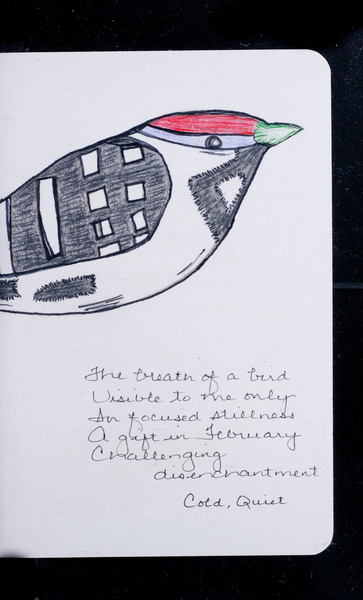 The breath of a bird
Visible to me only
In focused stillness
A gift in February
Challenging
disenchantment
Cold, Quiet